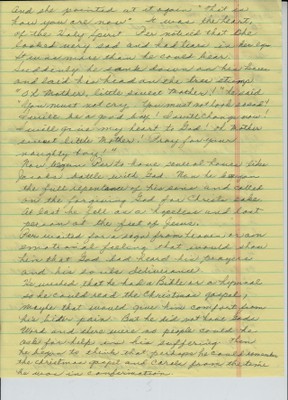 and she pointed at it again "This is
how you are now" It was the heart,
of the Holy Spirit. Per noticed that she
looked very sad and had tears in her eyes
It was more than he could bear.
Suddenly he sank down on his knees
and laid his head on the tree stump
"Oh Mother, little sweet Mother!" he said
"You must not cry. You must not look so sad!
I will be a good boy! I will change now!
I will give my heart to God! Oh Mother
sweet little Mother! Pray for your
naughty boy!"
Now began Per to have several hours like
Jacobs battle with God. Now he began
the full repentance of his sins and called
on the forgiving God for Christs sake.
At last he fell as a lifeless and
person at the feet of Jesus.
Per waited for a sign from heaven or an
emotional feeling that would show
him that God had heard his prayers
and his souls deliverance.
He wished that he had a Bible or a hymnal
so he could read the Christmas gospel,
maybe that would give him comfort from
his bitter pain. But he did not have Gods
Word and there were no people could he
ask for help in his suffering. Then
he began to think that perhaps he could remember
the Christmas gospel and Carols from the time
he was in Confirmation